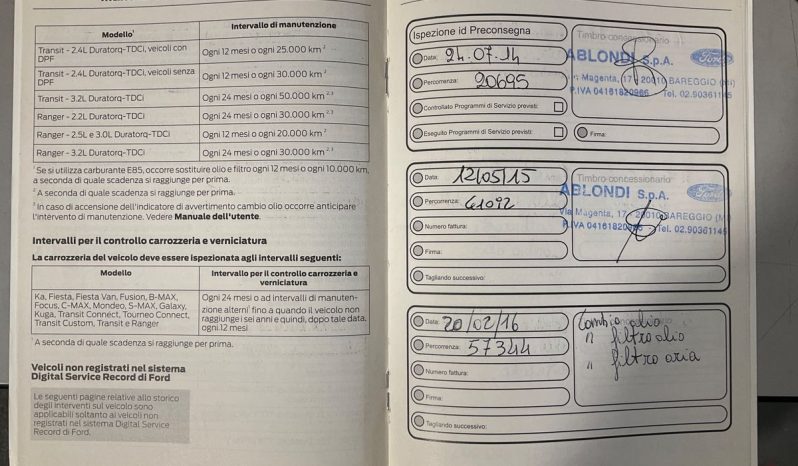 Modello¹
Intervallo di manutenzione
Transit - 2.4L Duratorq-TDCi, veicoli con DPF
Ogni 12 mesi o ogni 25.000 km ²
Transit - 2.4L Duratorq-TDCi, veicoli senza DPF
Ogni 12 mesi o ogni 30.000 km ²
Transit - 3.2L Duratorq-TDCi
Ogni 24 mesi o ogni 50.000 km ²,³
Ranger - 2.2L Duratorq-TDCi
Ogni 24 mesi o ogni 30.000 km ²,³
Ranger - 2.5L e 3.0L Duratorq-TDCi
Ogni 12 mesi o ogni 20.000 km ²
Ranger - 3.2L Duratorq-TDCi
Ogni 24 mesi o ogni 30.000 km ²,³
¹ Se si utilizza carburante E85, occorre sostituire olio e filtro ogni 12 mesi o ogni 10.000 km,
a seconda di quale scadenza si raggiunge per prima.
² A seconda di quale scadenza si raggiunge per prima.
³ In caso di accensione dell'indicatore di avvertimento cambio olio occorre anticipare
l'intervento di manutenzione. Vedere Manuale dell'utente.
Intervalli per il controllo carrozzeria e verniciatura
La carrozzeria del veicolo deve essere ispezionata agli intervalli seguenti:
Modello
Intervallo per il controllo carrozzeria e
verniciatura
Ka, Fiesta, Fiesta Van, Fusion, B-MAX,
Focus, C-MAX, Mondeo, S-MAX, Galaxy,
Kuga, Transit Connect, Tourneo Connect,
Transit Custom, Transit e Ranger
Ogni 24 mesi o ad intervalli di manuten-
zione alterni¹ fino a quando il veicolo non
raggiunge i sei anni e quindi, dopo tale data,
ogni 12 mesi
¹ A seconda di quale scadenza si raggiunge per prima.
Veicoli non registrati nel sistema
Digital Service Record di Ford
Le seguenti pagine relative allo storico
degli interventi sul veicolo sono
applicabili soltanto ai veicoli non
registrati nel sistema Digital Service
Record di Ford.
Ispezione id Preconsegna
Data: 24.07.14
Percorrenza: 20695
Controllato Programmi di Servizio previsti:
Eseguito Programmi di Servizio previsti:
Timbro concessionario
ABLONDI S.p.A.
Via Magenta, 17 - 20010 BAREGGIO (MI)
P.IVA 04161820966 Tel. 02.90361145
Ford
Firma:
Data: 12/05/15
Percorrenza: 41092
Numero fattura:
Firma:
Tagliando successivo:
Timbro concessionario
ABLONDI S.p.A.
Via Magenta, 17 - 20010 BAREGGIO (MI)
P.IVA 04161820966 Tel. 02.90361145
Ford
Data: 20/02/16
Percorrenza: 57344
Numero fattura:
Firma:
Tagliando successivo:
Cambio olio
" filtro olio
" filtro aria